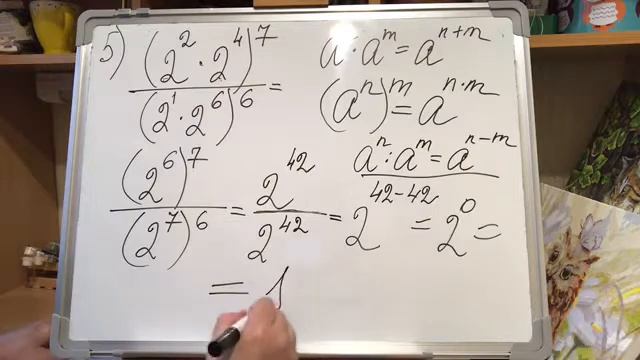 5) (2² · 2⁴)⁷ / (2¹ · 2⁶)⁶ =
aⁿ · aᵐ = aⁿ⁺ᵐ
(aⁿ)ᵐ = aⁿ·ᵐ
aⁿ : aᵐ = aⁿ⁻ᵐ
(2⁶)⁷ / (2⁷)⁶ = 2⁴² / 2⁴² = 2⁴²⁻⁴² = 2⁰ =
= 1